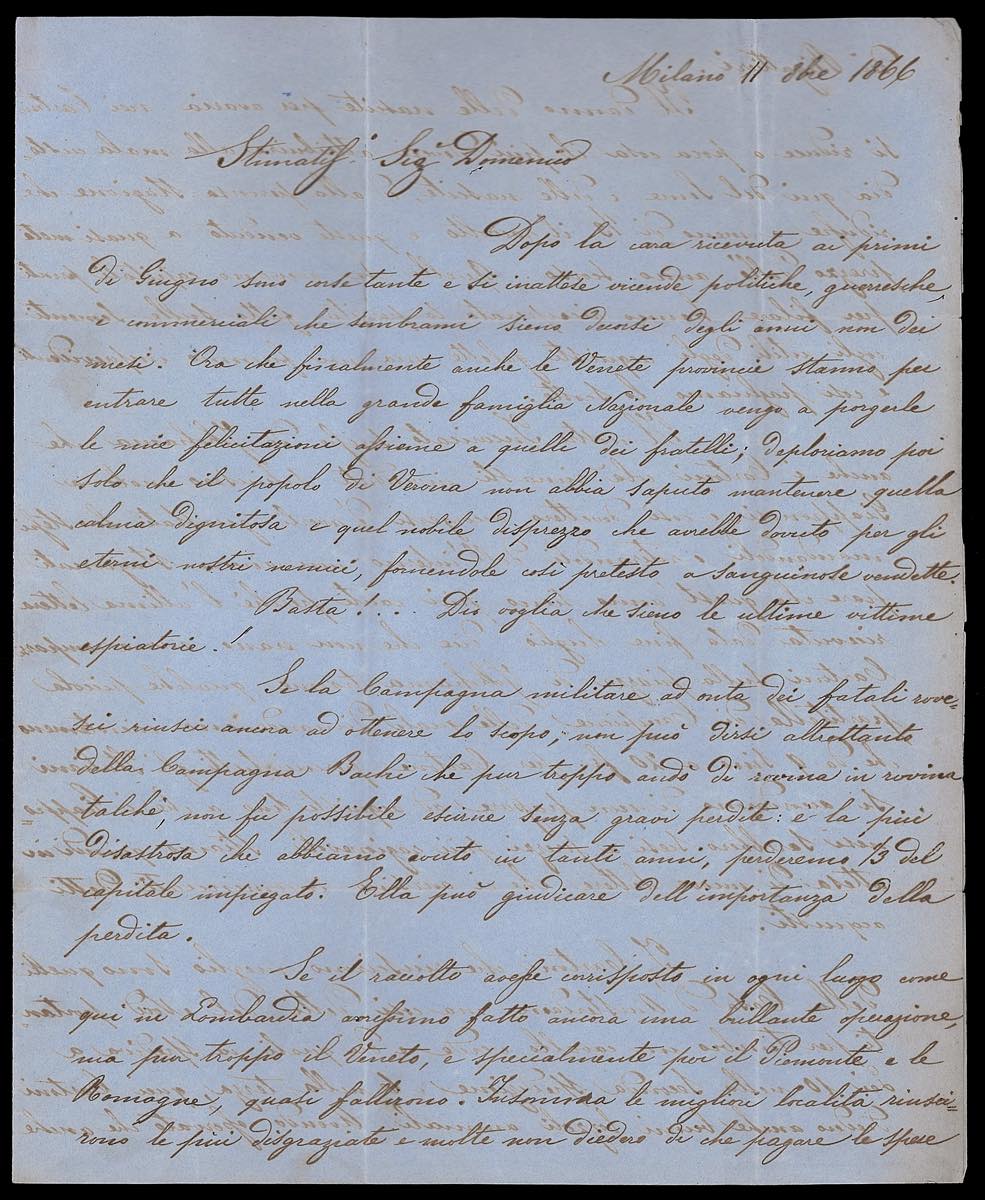 Milano 11 8bre 1866
Stimatiss.o Sig.r Domenico
Dopo la cara ricevuta ai primi
di Giugno sono corse tante e sì inattese vicende politiche, guerresche,
e commerciali che sembrami sieno decorsi degli anni non dei
mesi. Ora che finalmente anche le Venete provincie stanno per
entrare tutte nella grande famiglia Nazionale vengo a porgerle
le mie felicitazioni assieme a quelli dei fratelli; deploriamo poi
solo che il popolo di Verona non abbia saputo mantenere quella
calma dignitosa e quel nobile disprezzo che avrebbe dovuto per gli
eterni nostri nemici, fornendole così pretesto a sanguinose vendette.
Basta!.. Dio voglia che sieno le ultime vittime
espiatorie!
Se la Campagna militare ad onta dei fatali rove=
sci riuscì ancora ad ottenere lo scopo, non può dirsi altrettanto
della Campagna Bachi che pur troppo andò di rovina in rovina
talchè, non fu possibile escirne senza gravi perdite: e la più
disastrosa che abbiamo avuto in tanti anni, perderemo 1/3 del
capitale impiegato. Ella può giudicare dell'importanza della
perdita.
Se il raccolto avesse corrisposto in ogni luogo come
qui in Lombardia avressimo fatto ancora una brillante operazione,
ma pur troppo il Veneto, e specialmente poi il Piemonte e le
Romagne, quasi fallirono. Insomma le migliori località riusci=
rono le più disgraziate e molte non diedero di che pagare le spese